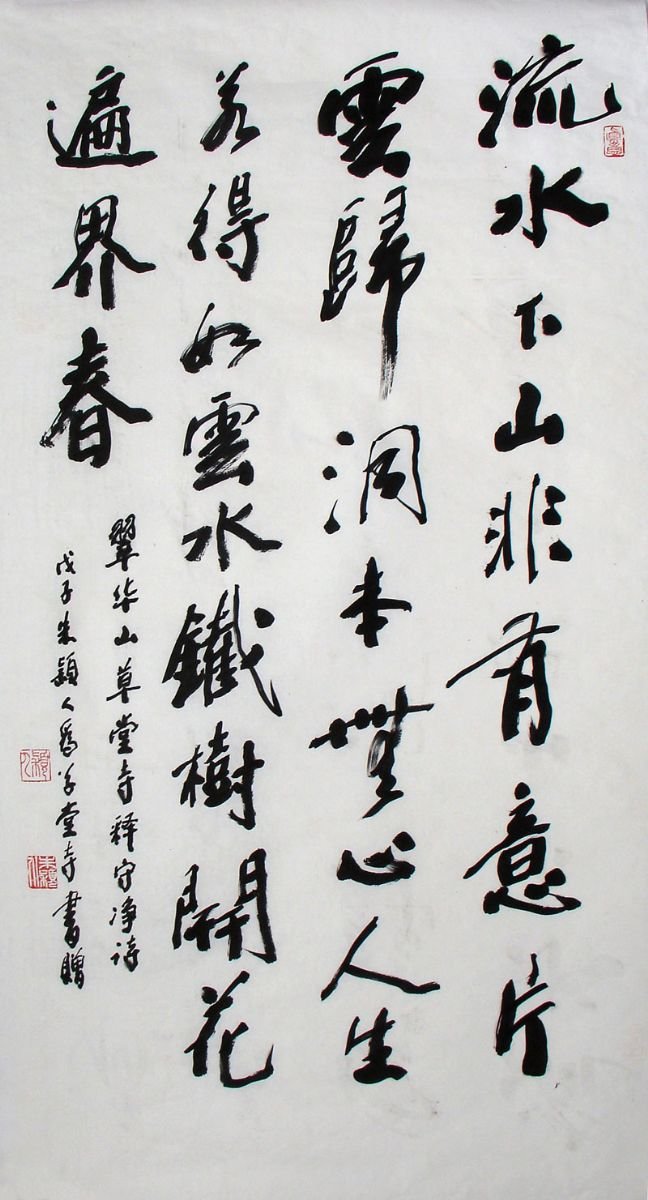 流水下山非有意片
雲歸洞本無心人生
若得如雲水鐵樹開花
遍界春
翠华山草堂寺释守净诗
戊子朱穎人爲草堂寺書贈